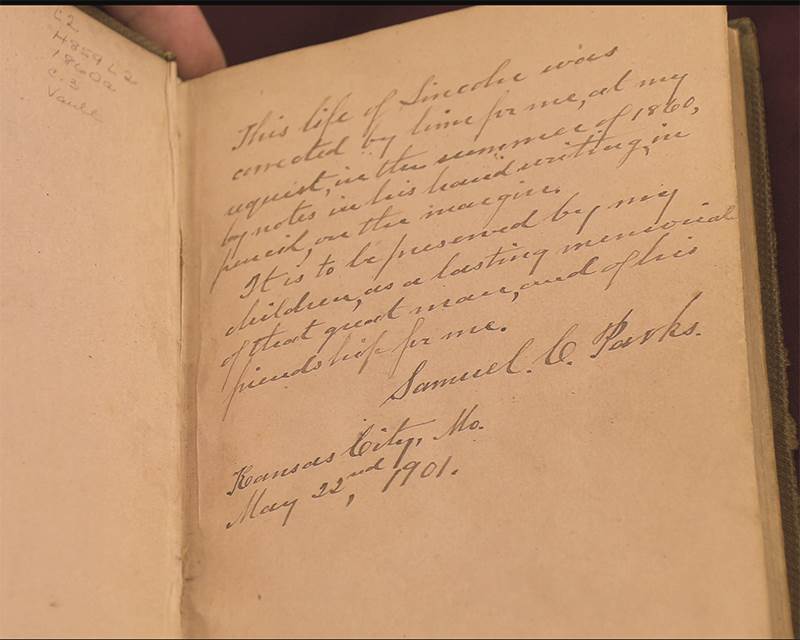 C2
H859 L2
1860a
c.3
Vault
This life of Lincoln was
corrected by him for me, at my
request, in the summer of 1860,
by notes in his handwriting, in
pencil, on the margin.
It is to be preserved by my
children, as a lasting memorial
of that great man, and of his
friendship for me.
Samuel. C. Parks.
Kansas City, Mo.
May 22nd, 1901.